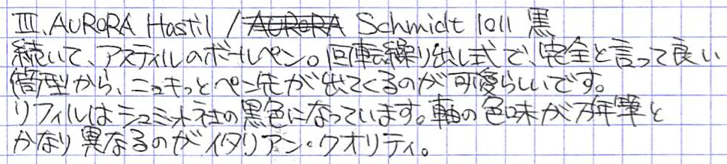 III. AURORA Hastil / AURORA Schmidt 1011 黒
続いて、アスティルのボールペン。回転繰り出し式で、完全と言って良い
筒型から、ニュキっとペン先が出てくるのが可愛らしいです。
リフィルはシュミット社の黒色になっています。軸の色味が万年筆と
かなり異なるのがイタリアン・クオリティ。